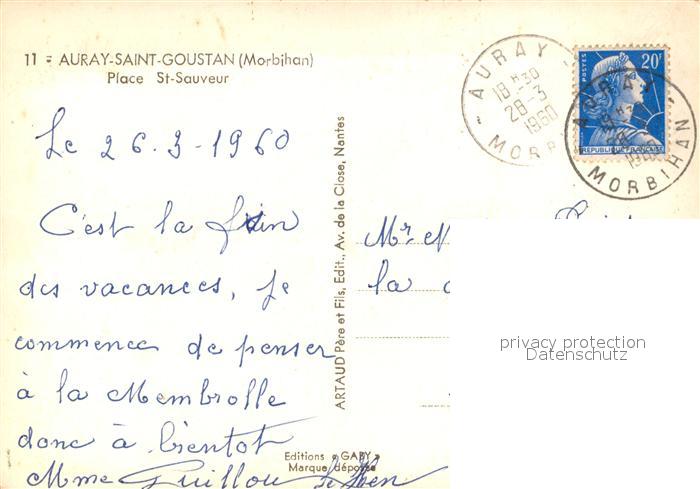 11 - AURAY-SAINT-GOUSTAN (Morbihan)
Place St-Sauveur
Le 26-3-1960
C'est la fin
des vacances, je
commence de penser
à la Membrolle
donc à bientot
Mme Guillou
ARTAUD Père et Fils, Edit., Av. de la Close, Nantes
Editions « GABY »
Marque déposée
AURAY
18 H-30
28-3
1960
MORB
POSTES
20F
REPUBLIQUE FRANÇAISE
AURAY
MORBIHAN
Mr
la
privacy protection
Datenschutz